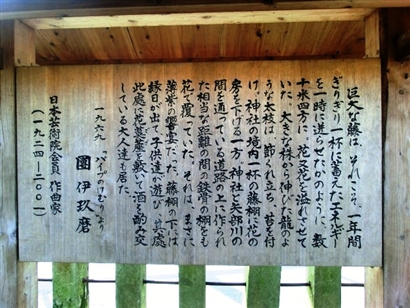 巨大な藤は、それこそ、一年間
ぎりぎり一杯に蓄えたエネルギー
を一時に迸らせたかのように、数
十米四方に、花又花を溢れさせて
いた。大きな株から伸びた龍のよ
うな太枝は、節くれ立ち、苔を付
け、神社の境内一杯の藤棚に花の
房を下げる一方、神社と矢部川の
間を通っている道路の上に作られ
た相当な距離の間の鉄骨の棚をも
花で覆っていた。それは、まさに
薄紫の饗宴だった。藤棚の下には
縁日が出て、子供達が遊び、其処
此処に花茣蓙を敷いて酒を酌み交
している大人達も居た。
一九六九 「パイプのけむり」より
團 伊玖磨
日本芸術院会員 作曲家
(一九二四―二〇〇一)